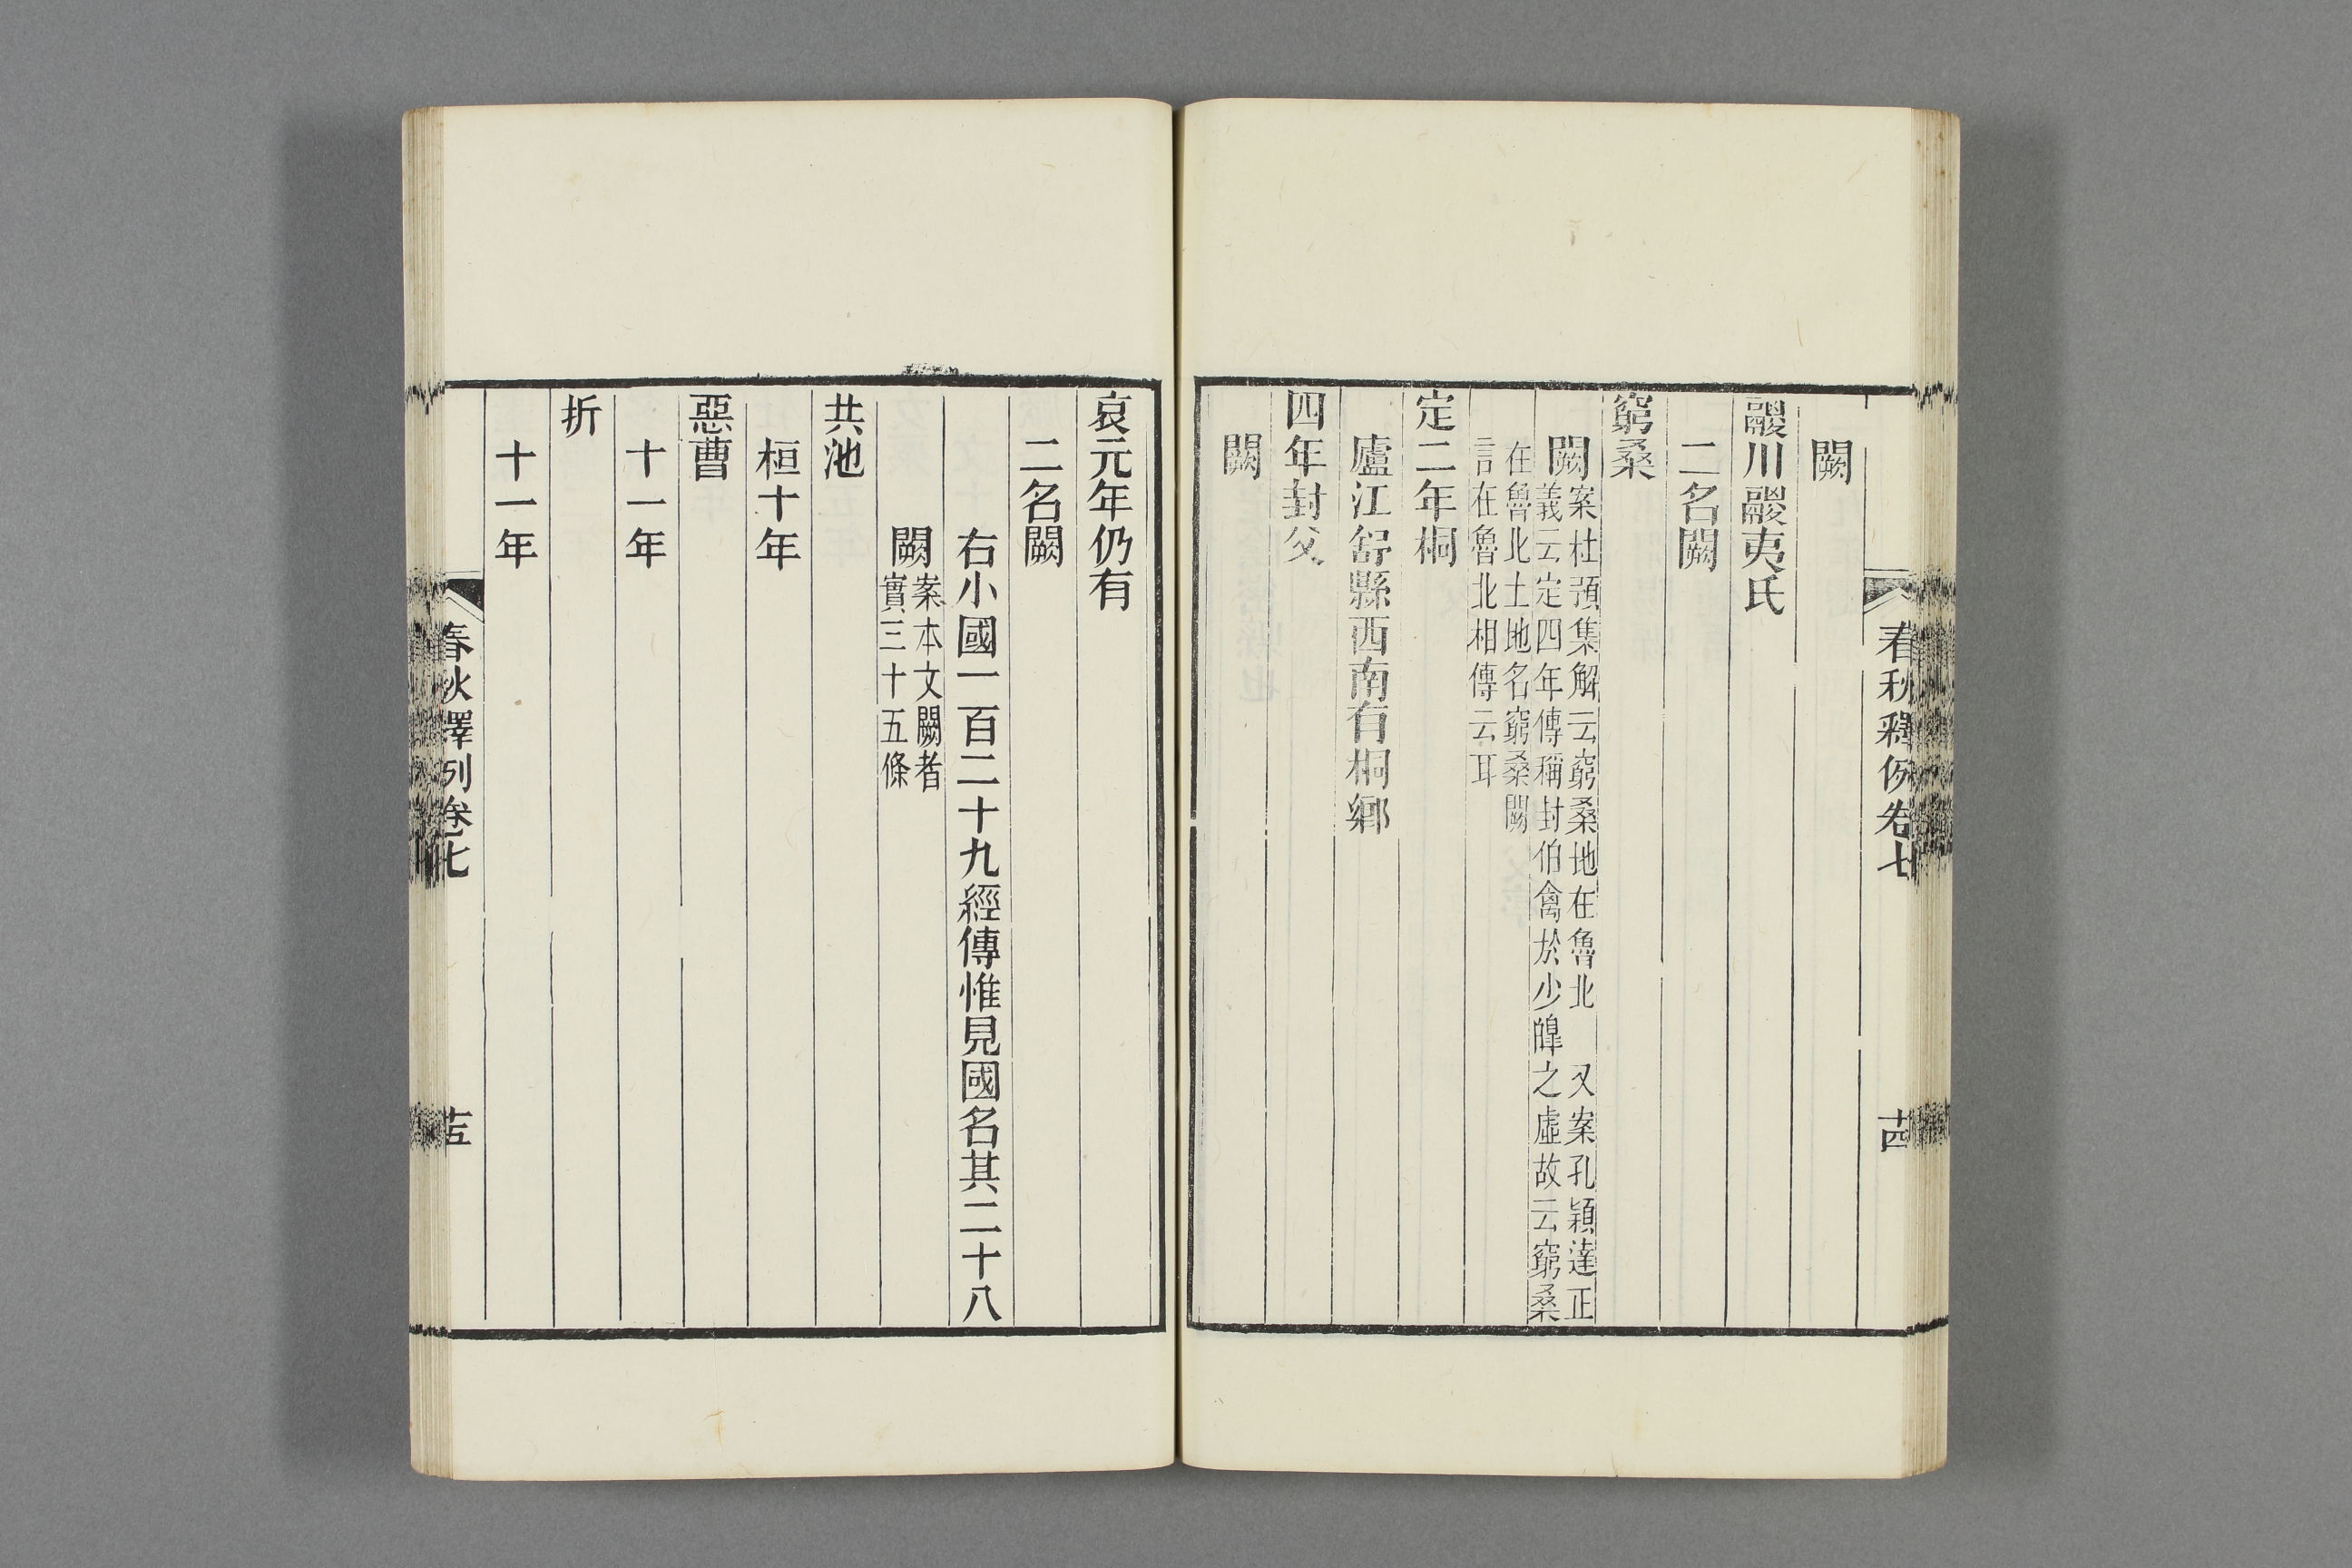 春秋釋例卷七
十四
闕
鬷川鬷夷氏
二名闕
窮桑
闕案杜預集解云窮桑地在魯北　又案孔穎達正
義云定四年傳稱封伯禽於少皥之虛故云窮桑
在魯北土地名窮桑闕
言在魯北相傳云耳
定二年桐
廬江舒縣西南有桐鄉
四年封父
闕
哀元年仍有
二名闕
右小國一百二十九經傳惟見國名其二十八
闕案本文闕者
實三十五條
共池
桓十年
惡曹
十一年
折
十一年
春秋釋例卷七
十五